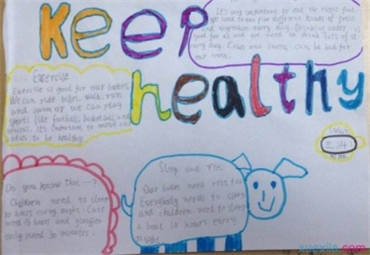 Keep
healthy
It's very important to eat the right food.
We need to eat five different kinds of fruit
and vegetables every day. Drinking water is
good for us and we need to drink lots of it
every day. Cakes and sweets can be bad for
our teeth.
Exercise
Exercise is good for our bodies.
We can ride bikes, walk, run
and swim or we can play
sports like football, basketball and
It's important to
to be healthy.
Do you know this
Children need to sleep
hours every night. Cats
need hours and giraffes
only need 30 minutes.
Sleep and rest
Our bodies need rest too.
Everybody needs to sleep
and children need to sleep
10 hours every
night.